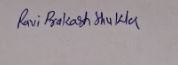 Ravi Prakash Shukla